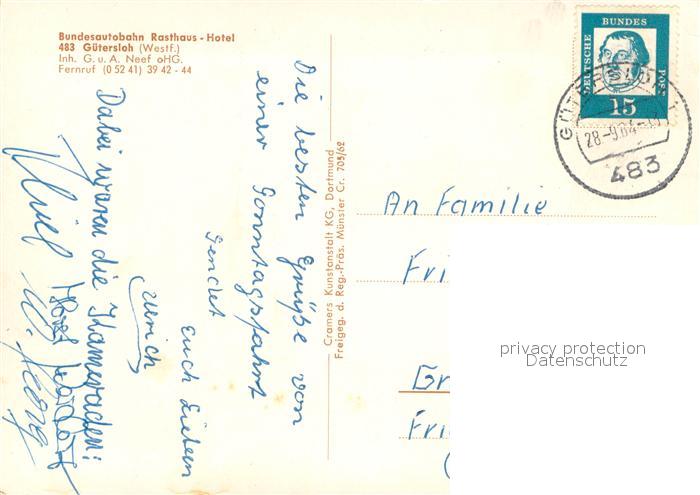 Bundesautobahn Rasthaus - Hotel
483 Gütersloh (Westf.)
Inh. G. u. A. Neef oHG.
Fernruf (0 52 41) 39 42 - 44
Die besten Grüße von
einer Sonntagsfahrt
sendet
Euch Lieben
Ulrich
Dabei waren die Kameraden:
Horst
Cramers Kunstanstalt KG, Dortmund
Freigeg. d. Reg.-Präs. Münster Cr. 705/62
DEUTSCHE BUNDES POST
15
GÜTERSLOH 1
28.-9.64
483
An Familie
Fri
Gr
Fri
(
privacy protection
Datenschutz